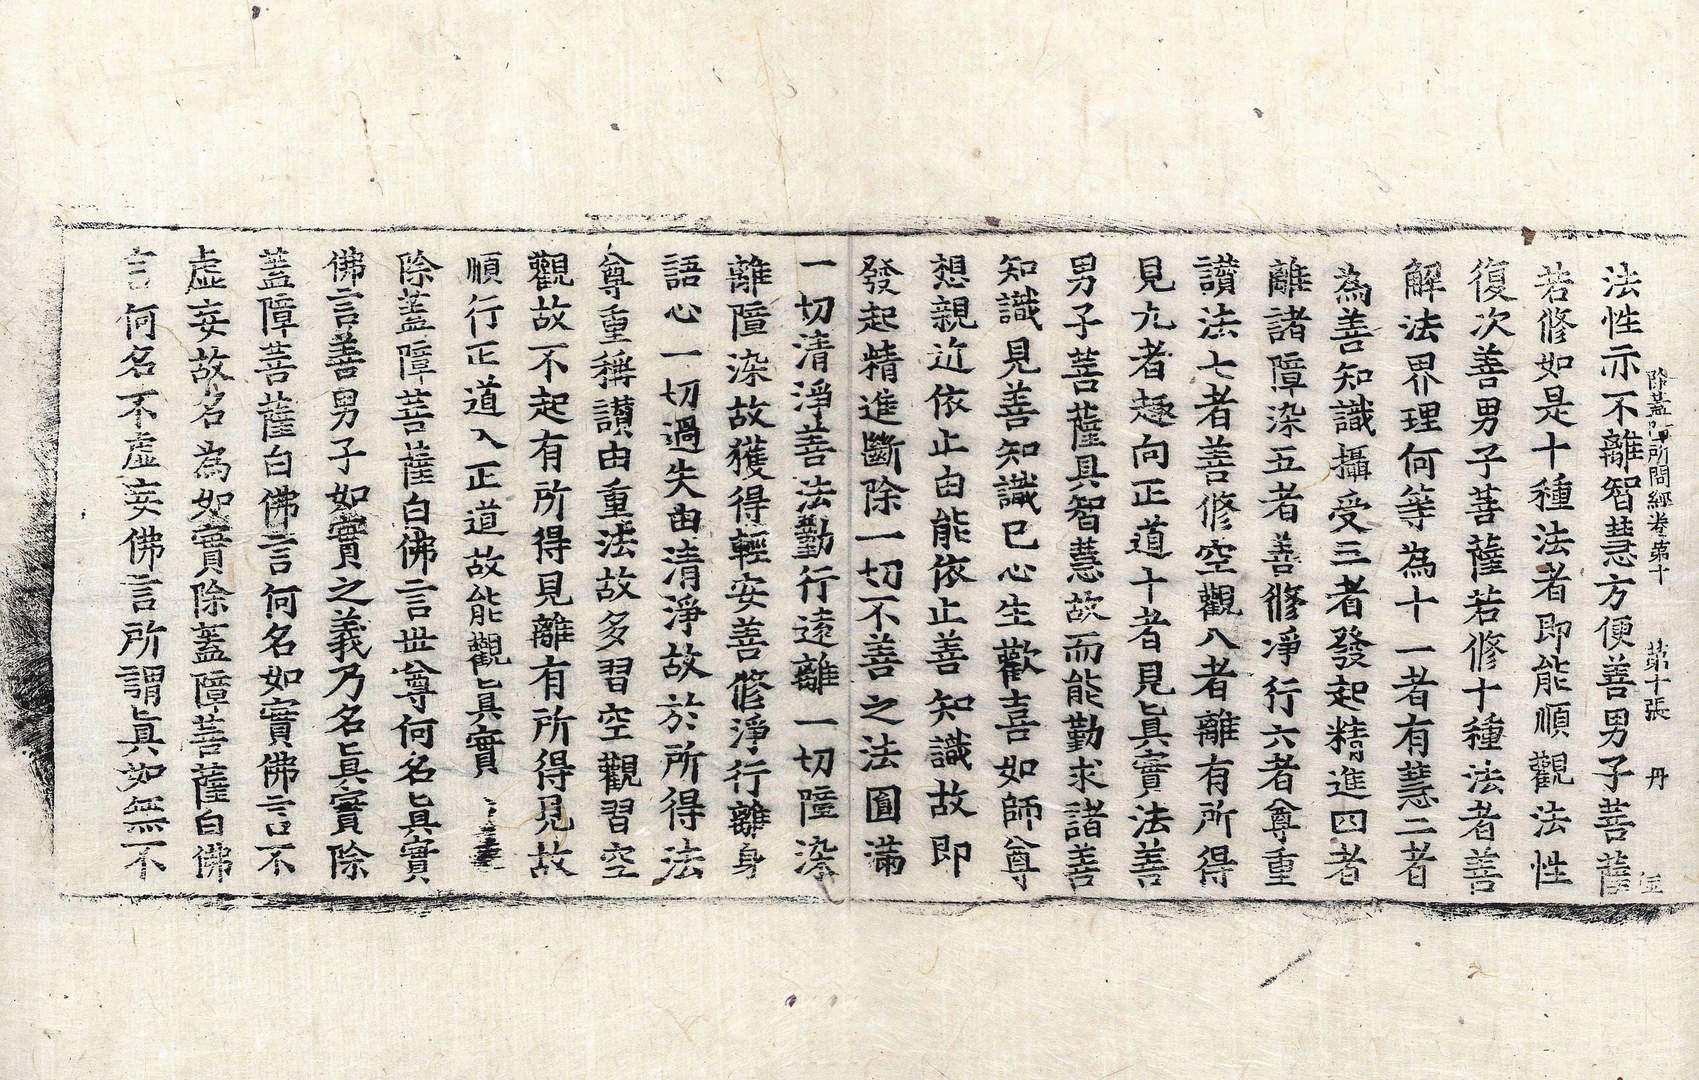 除蓋障所問經卷第十 第十張 丹
法性亦不離智慧方便善男子菩薩
若修如是十種法者即能順觀法性
復次善男子菩薩若修十種法者善
解法界理何等為十一者有慧二者
為善知識攝受三者發起精進四者
離諸障染五者善修淨行六者尊重
讃法七者善修空觀八者離有所得
見九者趣向正道十者見眞實法善
男子菩薩具智慧故而能勤求諸善
知識見善知識已心生歡喜如師尊
想親近依止由能依止善知識故即
發起精進斷除一切不善之法圓滿
一切清淨善法勤行遠離一切障染
離障染故獲得輕安善修淨行離身
語心一切過失由清淨故於所得法
尊重稱讃由重法故多習空觀習空
觀故不起有所得見離有所得見故
順行正道入正道故能觀眞實
除蓋障菩薩白佛言世尊何名眞實
佛言善男子如實之義乃名眞實除
蓋障菩薩白佛言何名如實佛言不
虛妄故名為如實除蓋障菩薩白佛
言何名不虛妄佛言所謂眞如無不